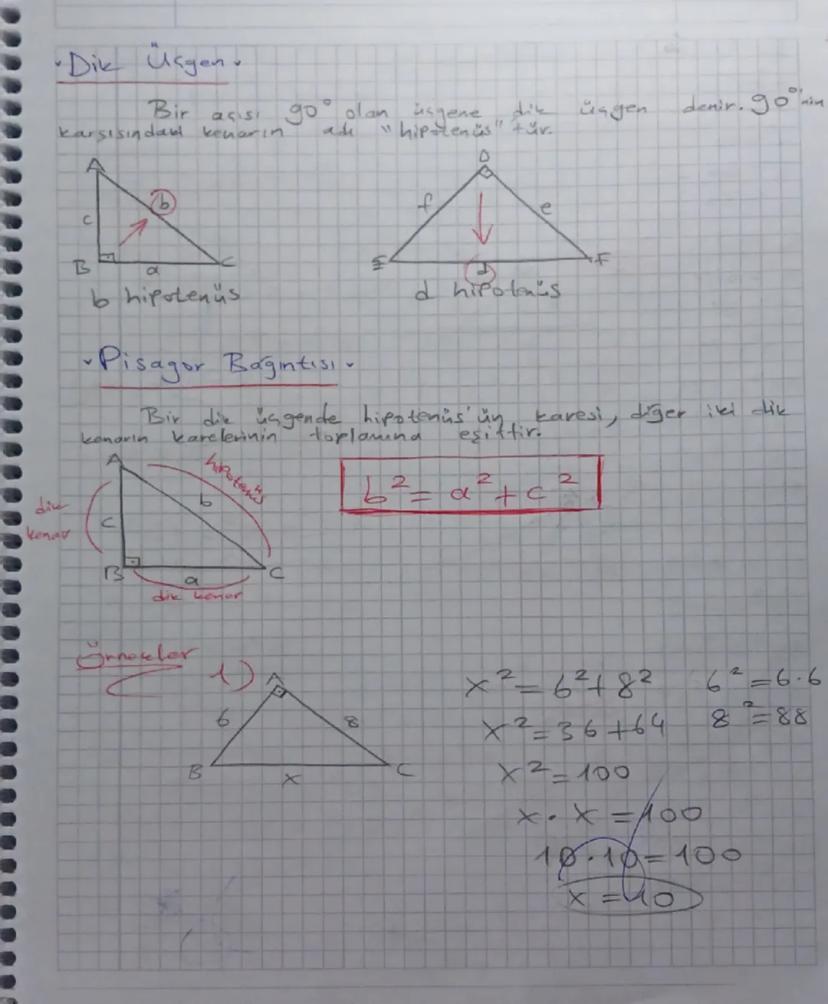 · Dik Üçgen ·
Bir açısı 90° olan üçgene dik üçgen denir. 90°'nin
karşısındaki kenarın adı "hipotenüs" tür.
A
D
b
c
f
e
B
a
C
E
d
F
b hipotenüs
d hipotenüs
· Pisagor Bağıntısı ·
Bir dik üçgende hipotenüs'ün karesi, diğer iki dik
kenarın karelerinin toplamına eşittir.
A
hipotenüs
b² = a² + c²
dik
kenar
c
b
B
a
C
dik kenar
Örnekler
1)
A
6
8
B
x
C
x² = 6² + 8²
6² = 6·6
x² = 36 + 64
8² = 88
x² = 100
x · x = 100
10 · 10 = 100
x = 10